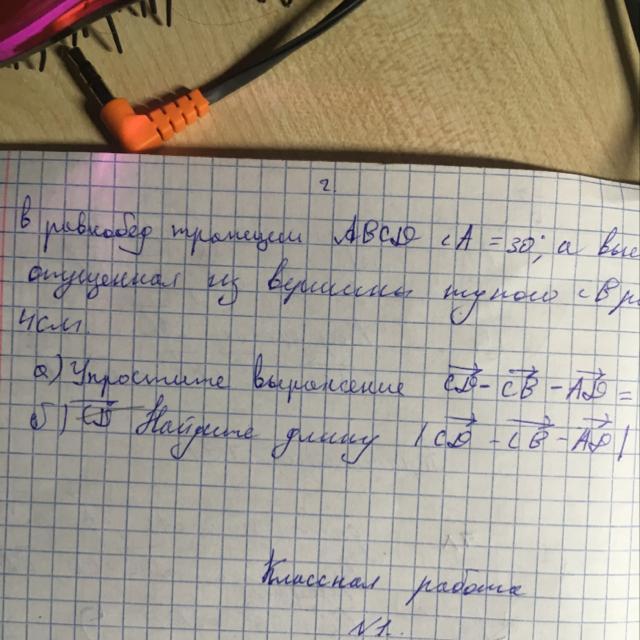 2.
В равнобед трапеции ABCD ∠A = 30°, а выс
опущенная из вершины тупого ∠B р
4см.
а) Упростите выражение CD⃗ - CB⃗ - AD⃗ =
б) Найдите длину |CD⃗ - CB⃗ - AD⃗|
Классная работа
N1.